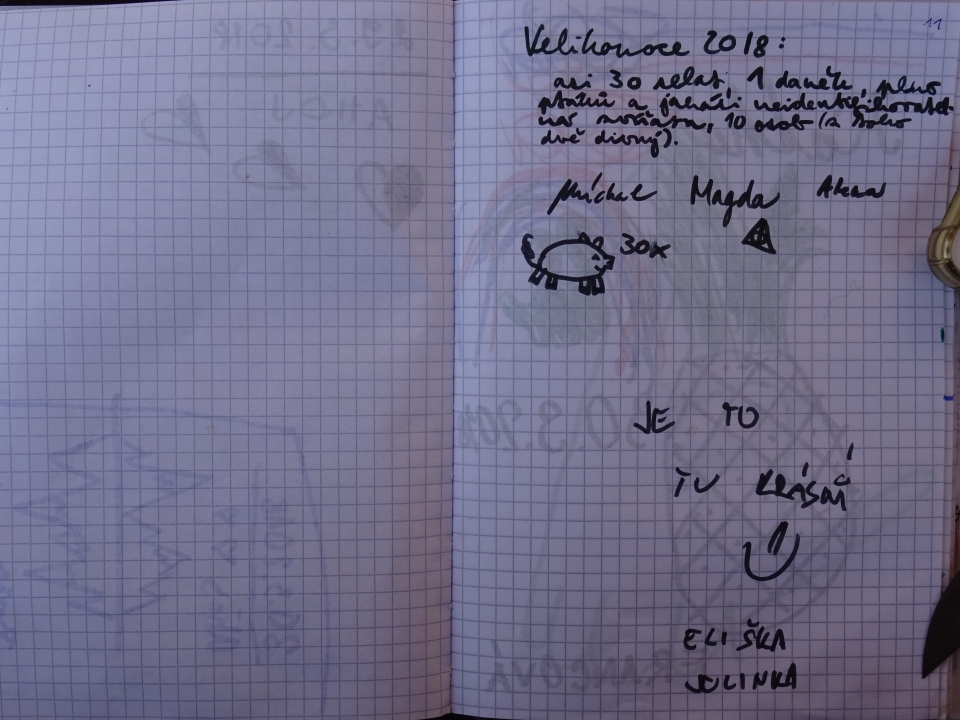 11
Velikonoce 2018:
asi 30 selat, 1 daněk, plus
ptáků a jakási neidentifikovatel-
ná zvířata, 10 osob (z toho
dvě divný).
Michal Magda
30x
JE TO
TU KRÁSNÝ
ELIŠKA
JULINKA